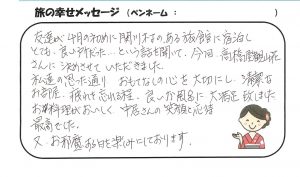 旅の幸せメッセージ（ペンネーム：　　　）
友達が4月の初めに関川村のある旅館に宿泊し
とても良い所だった…という話を聞いて、今回、高橋屋観山荘
さんに決めさせていただきました。
私達の思った通り おもてなしの心を大切にし、清潔な
お部屋、疲れを忘れる程、良いお風呂に大満足致しました
お料理がおいしく 中居さんの笑顔と応待
最高でした。
又、お邪魔する日を楽しみにしております。